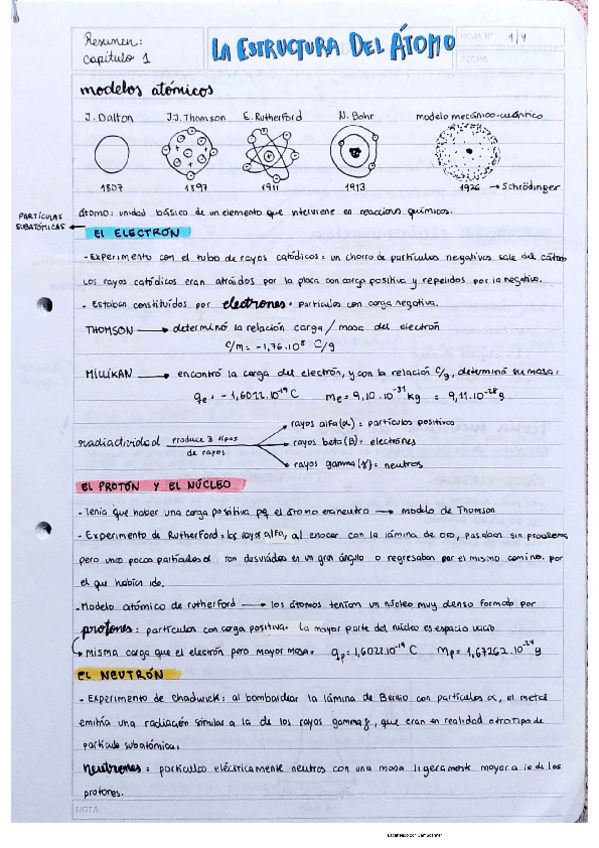 Resumen:
capítulo 1
LA ESTRUCTURA DEL ÁTOMO
HOJA N° 1/4
FECHA
modelos atómicos
J. Dalton J.J. Thomson E. Rutherford N. Bohr modelo mecánico-cuántico
1807 1897 1911 1913 1926 → Schrödinger
átomo: unidad básica de un elemento que interviene en reacciones químicas.
PARTÍCULAS
SUBATÓMICAS
El ELECTRÓN
- Experimento con el tubo de rayos catódicos: un chorro de partículas negativas sale del cátodo
Los rayos catódicos eran atraídos por la placa con carga positiva y repelidos por la negativa.
- Estaban constituídos por electrones: partículas con carga negativa.
THOMSON → determinó la relación carga / masa del electrón
C/m = -1,76.10⁸ C/g
MILLIKAN → encontró la carga del electrón, y con la relación C/g, determinó su masa:
qe = -1,6022.10⁻¹⁹ C me = 9,10.10⁻³¹ kg = 9,11.10⁻²⁸ g
radiactividad produce 3 tipos de rayos
rayos alfa (α) = partículas positivas
rayos beta (β) = electrones
rayos gamma (γ) = neutros
EL PROTÓN Y EL NÚCLEO
- Tenía que haber una carga positiva pq el átomo era neutro → modelo de Thomson
- Experimento de Rutherford = los rayos alfa, al chocar con la lámina de oro, pasaban sin problema,
pero unas pocas partículas α son desviadas en un gran ángulo o regresaban por el mismo camino por
el que habían ido.
- Modelo atómico de rutherford → los átomos tenían un núcleo muy denso formado por
protones: partículas con carga positiva. La mayor parte del núcleo es espacio vacío
misma carga que el electrón pero mayor masa. qp = 1,6022.10⁻¹⁹ C Mp = 1,67262.10⁻²⁴ g
EL NEUTRÓN
- Experimento de Chadwick: al bombardear la lámina de Berilio con partículas α, el metal
emitría una radiación similar a la de los rayos gamma γ, que eran en realidad otro tipo de
partícula subatómica:
neutrones: partículas eléctricamente neutras con una masa ligeramente mayor a la de los
protones.
NOTA